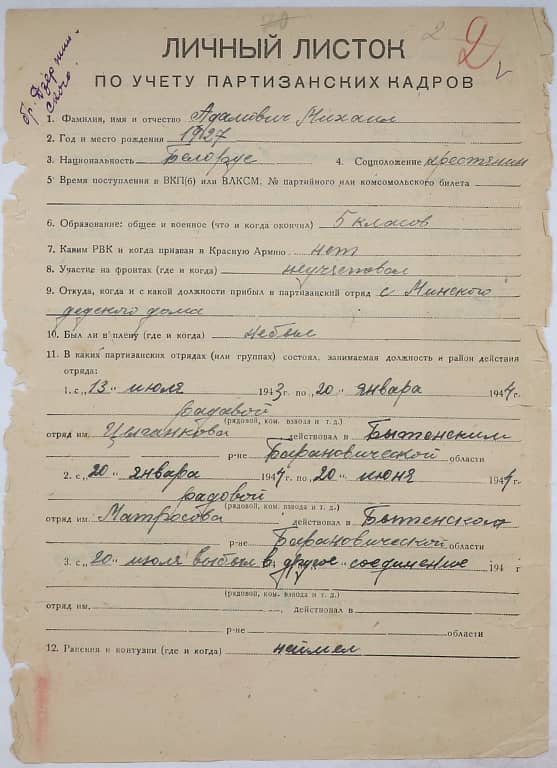 20
2
2
бр. Дзержин-
ского.
ЛИЧНЫЙ ЛИСТОК
ПО УЧЕТУ ПАРТИЗАНСКИХ КАДРОВ
1. Фамилия, имя и отчество Адамович Михаил
2. Год и место рождения 1927
3. Национальность Белорус 4. Соцположение крестянин
5 Время поступления в ВКП(б) или ВЛКСМ, № партийного или комсомольского билета
6. Образование: общее и военное (что и когда окончил) 5 класов
7. Каким РВК и когда призван в Красную Армию нет
8. Участие на фронтах (где и когда) неучаствовал
9. Откуда, когда и с какой должности прибыл в партизанский отряд с Минского
дедского дома
10. Был ли в плену (где и когда) небыл
11. В каких партизанских отрядах (или группах) состоял, занимаемая должность и район действия
отряда:
1. с „13" июля 1943 г. по „20" января 1944 г.
радавой
(рядовой, ком. взвода и т. д.)
отряд им. Цыганкова действовал в Бытенским
р-не Барановической области
2. с „20" января 1944 г. по „20" июня 1944 г.
радовой
(рядовой, ком. взвода и т. д.)
отряд им. Матросова действовал в Бытенского
р-не Барановической области
3. с „20" июля выбыл в другое соединение 194 г
(рядовой, ком. взвода и т. д.)
отряд им. , действовал в
р-не области
12. Ранения и контузии (где и когда) неимел